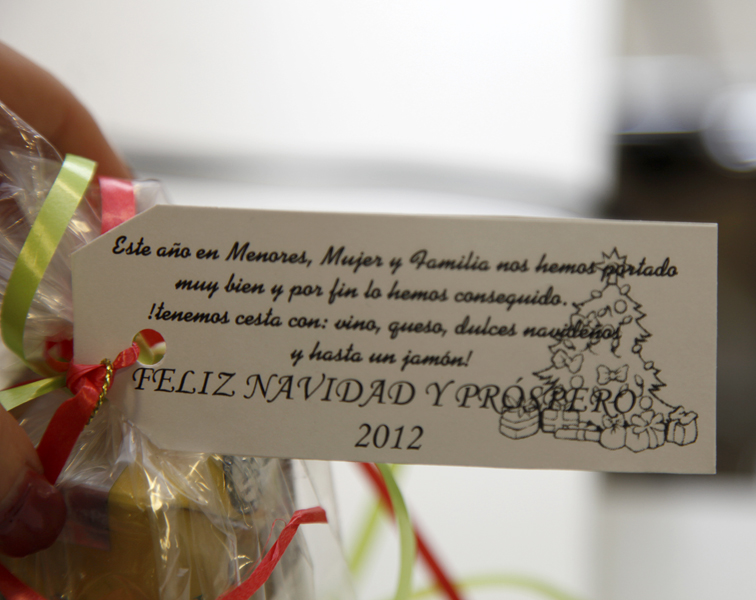 Este año en Menores, Mujer y Familia nos hemos portado
muy bien y por fin lo hemos conseguido.
!tenemos cesta con: vino, queso, dulces navideños
y hasta un jamón!
FELIZ NAVIDAD Y PRÓSPERO
2012